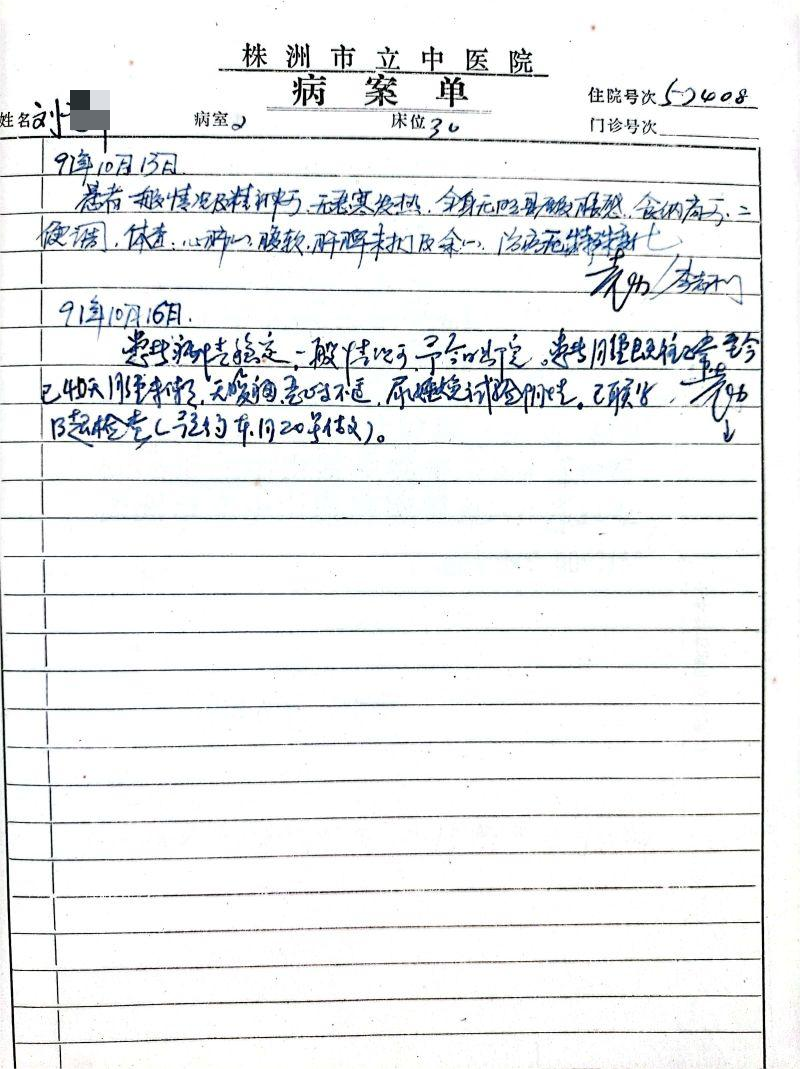 株洲市立中医院
病案单
住院号次 52408
姓名 刘 病室 2 床位 30 门诊号次
91年10月13日
患者一般情况及精神可,无恶寒发热,全身无明显酸胀感,食纳尚可,二
便调,体查:心肺(-),腹软,肝脾未扪及,余(-),治疗无特殊变化
91年10月16日.
患者病情稳定,一般情况可,予今日出院。患者月经既往正常,至今
已45天月经未潮,无腹痛,恶心等不适,尿妊娠试验阴性。已联系
B超检查(预约本月20号做)。